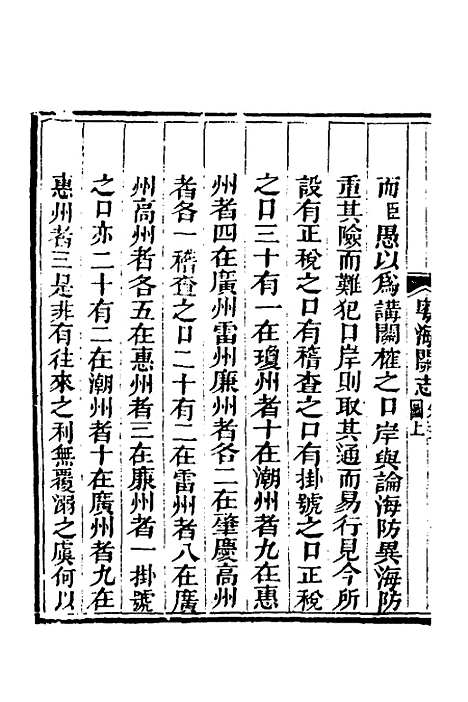 而臣愚以爲講關榷之口岸與論海防異海防
重其險而難犯口岸則取其通而易行見今所
設有正稅之口有稽查之口有掛號之口正稅
之口三十有一在瓊州者十在潮州者九在惠
州者四在廣州雷州廉州者各二在肇慶高州
者各一稽查之口二十有二在雷州者八在廣
州高州者各五在惠州者三在廉州者一掛號
之口亦二十有二在潮州者十在廣州者九在
惠州者三是非有往來之利無覆溺之虞何以
粵海關志
圖上